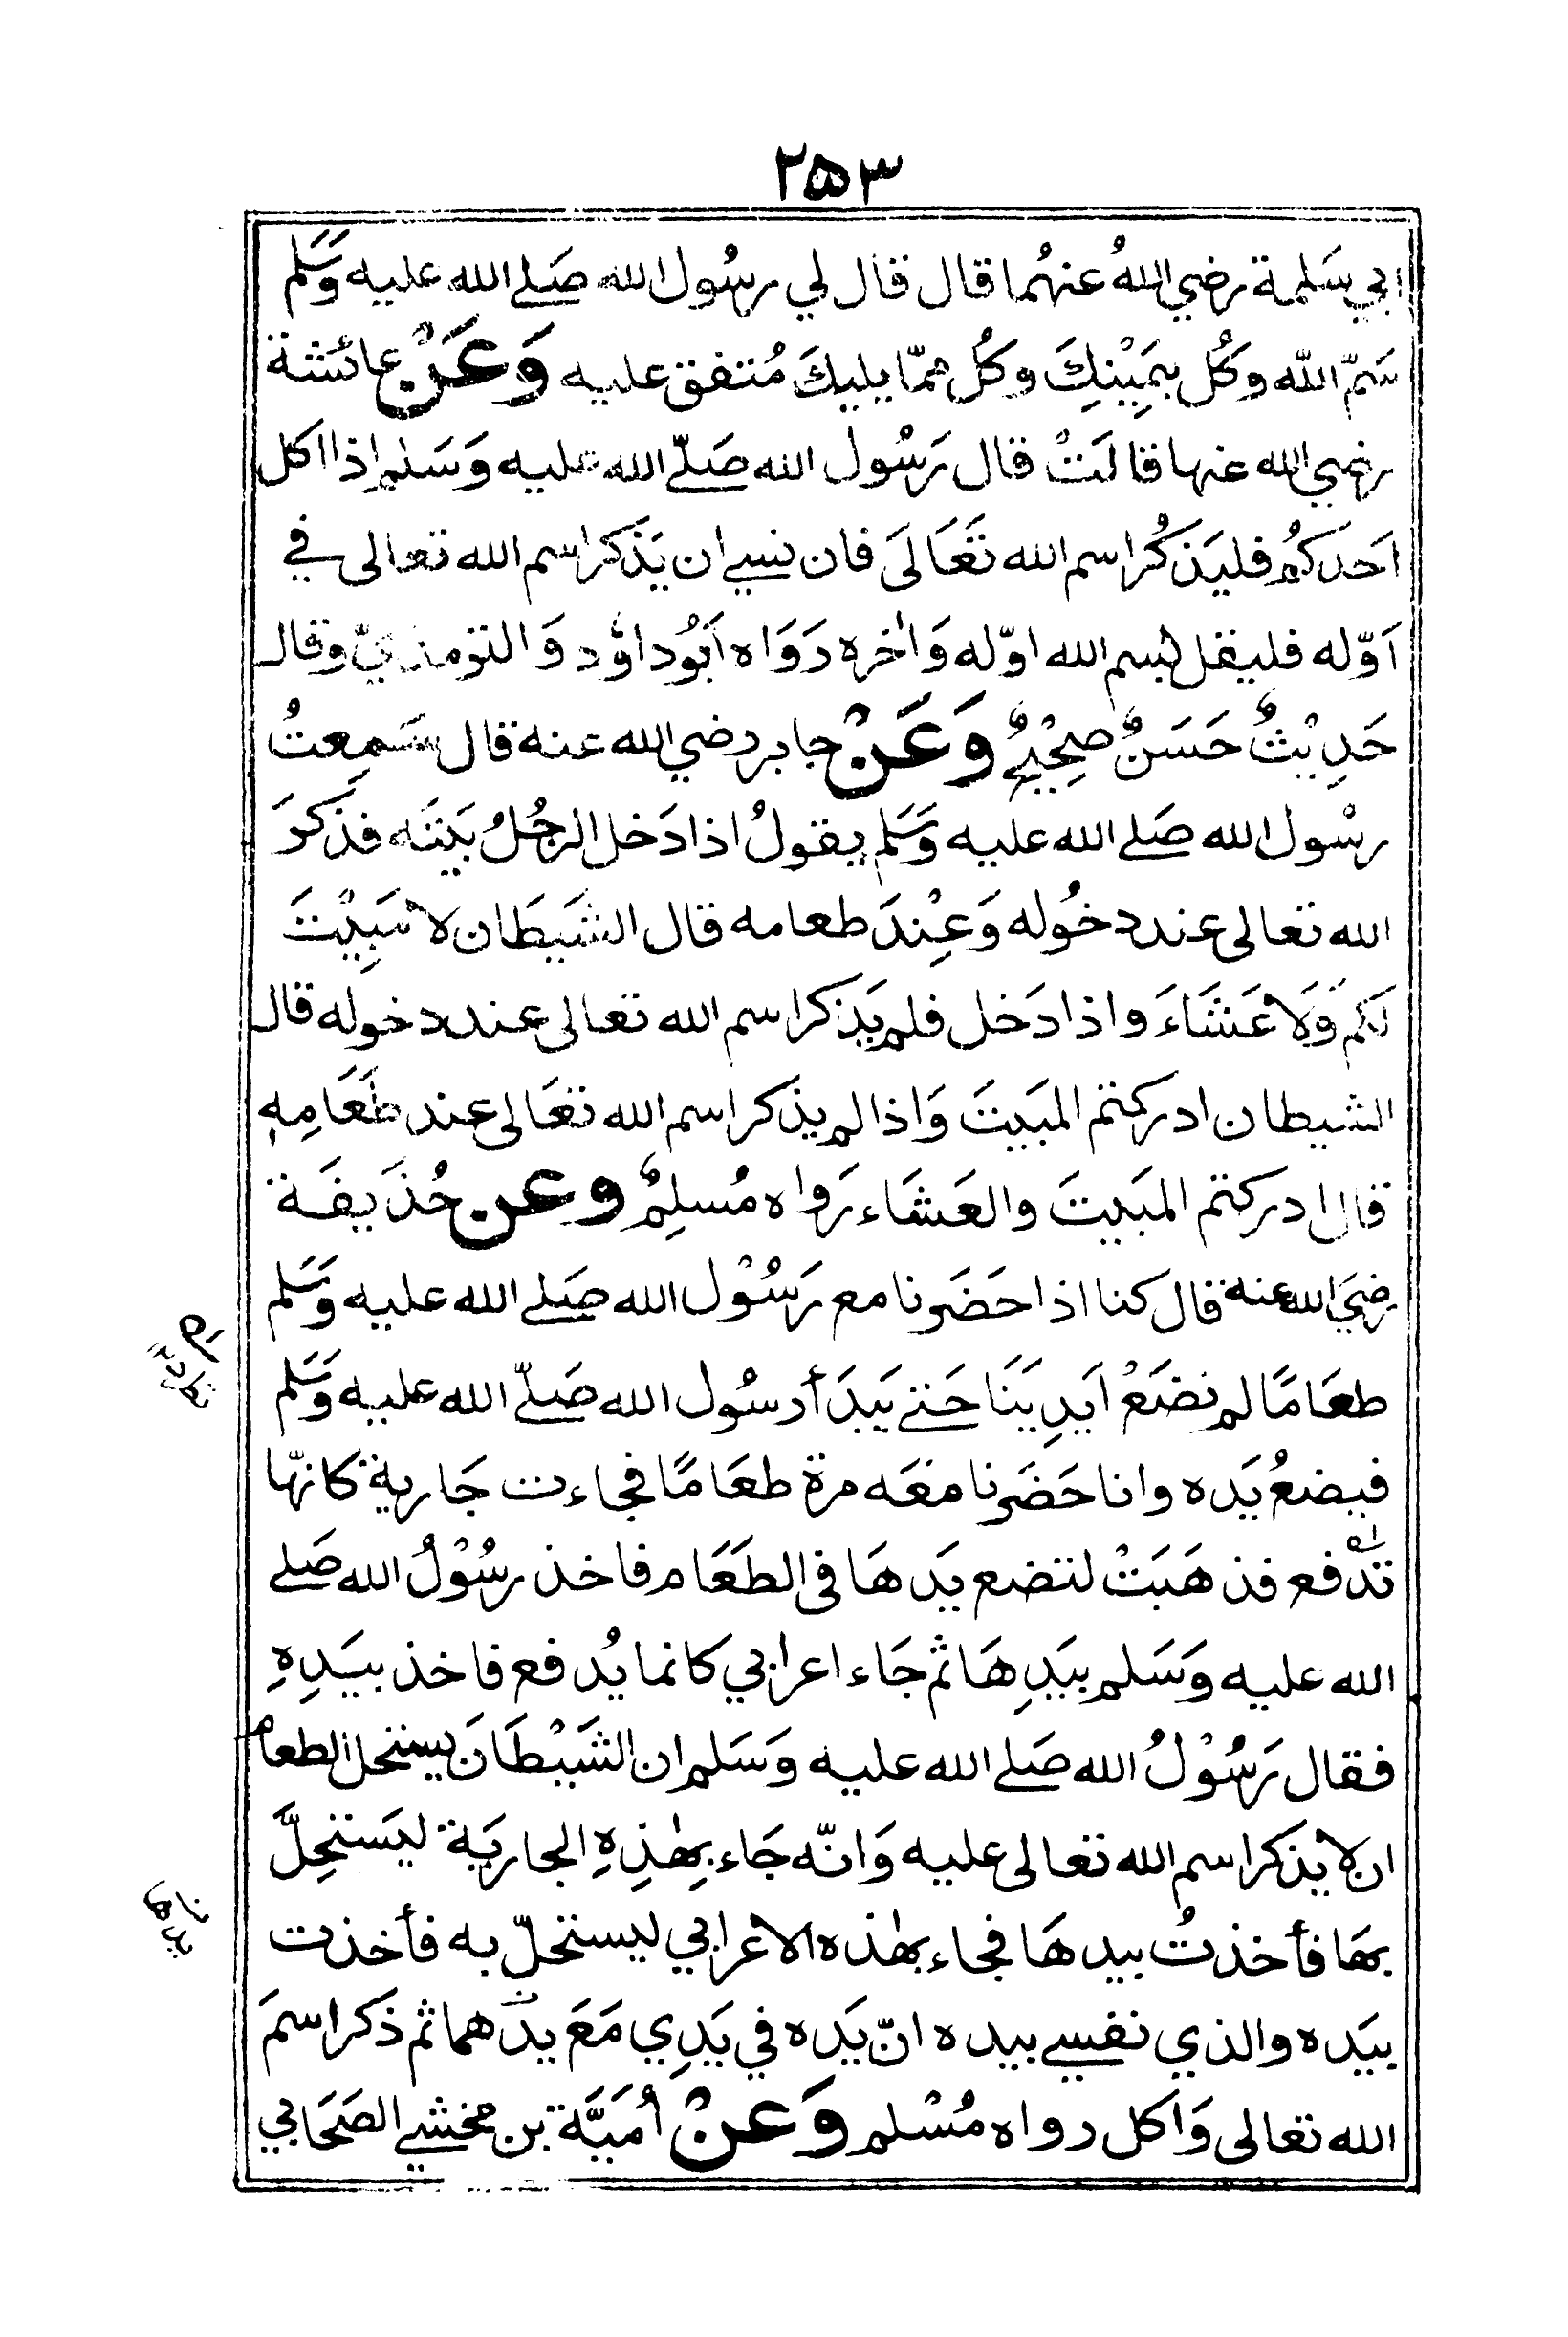 ٢٥٣
ابي سَلمة رضي اللهُ عنهُما قال قال لي رسُول الله صَلے الله عليه وَسَلم
سَمّ الله وكُل بيَمِيْنِكَ وكُل ممّا يليكَ مُتفق عليه وَعَنْ عائشة
رضي الله عنها قالَتْ قال رَسُول الله صَلّے الله عليه وَسَلم اِذا اكل
اَحَدكُم فليَذكُر اسم الله تَعَالَى فان نسي ان يَذكر اسم الله تعالى في
اَوّله فليقل بسم الله اوّله وَاٰخره رَوَاه اَبُو داوُد وَالترمذيّ وقال
حَدِيْثٌ حَسَنٌ صحِيْحٌ وَعَنْ جابر رضي الله عنه قال سَمِعتُ
رسُول الله صَلے الله عليه وَسَلم يقولُ اذا دَخل الرجُلُ بَيتَه فذكَرَ
الله تعالى عند دخُوله وَعِنْدَ طعامه قال الشَيطَان لا مَبِيْتَ
لكم وَلا عَشَاءَ واذا دَخل فلم يَذكر اسم الله تعالى عند دخوله قال
الشيطان ادركتم المبَيتَ وَاذا لم يذكر اسم الله تعَالى عند طَعَامِهٖ
قال ادركتم المبَيتَ والعَشَاء رَواه مُسلِمٌ وعن حُذَيفَة
رضيَ الله عنه قال كنا اذا حَضَرنا مع رَسُوْل الله صَلے الله عليه وَسَلم
طعَامًا لم نضَعْ اَيدِيَنَا حَتے يَبدَأ رسُول الله صَلّے الله عليه وَسَلم
فيضعُ يَده وانا حَضَرنا مَعَه مرة طعَامًا فجاءت جَارية كانّها
تدْفع فذهَبَتْ لتضع يَدهَا فى الطَعَام فاخذ رسُوْلُ الله صَلے
الله عليه وَسَلم بيَدِهَا ثم جَاء اعرابي كانما يُدفع فاخذ بيَدِهٖ
فقال رَسُوْلُ الله صَلے الله عليه وَسَلم ان الشَيْطَانَ يستحل الطعام
ان لا يذكر اسم الله تعالى عليه وَانّه جَاء بهٰذِهِ الجاريَة ليَستَحِلَّ
بهَا فأخذتُ بيدهَا فجاء بهٰذه الاعرَابي ليستحلّ به فأخذت
بيَده والذي نفسي بيده انّ يَده في يَدِي مَعَ يدَهما ثم ذكر اسمَ
الله تعالى وَاكل رواه مُسْلم وَعنْ اُمَيَّة بن مخشي الصَحَابي
يدها